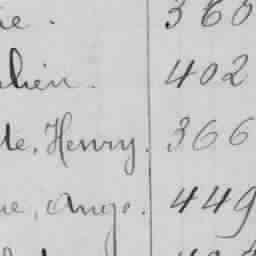 ie. 360
lien. 402
de, Henry. 366
ne, Ange. 449